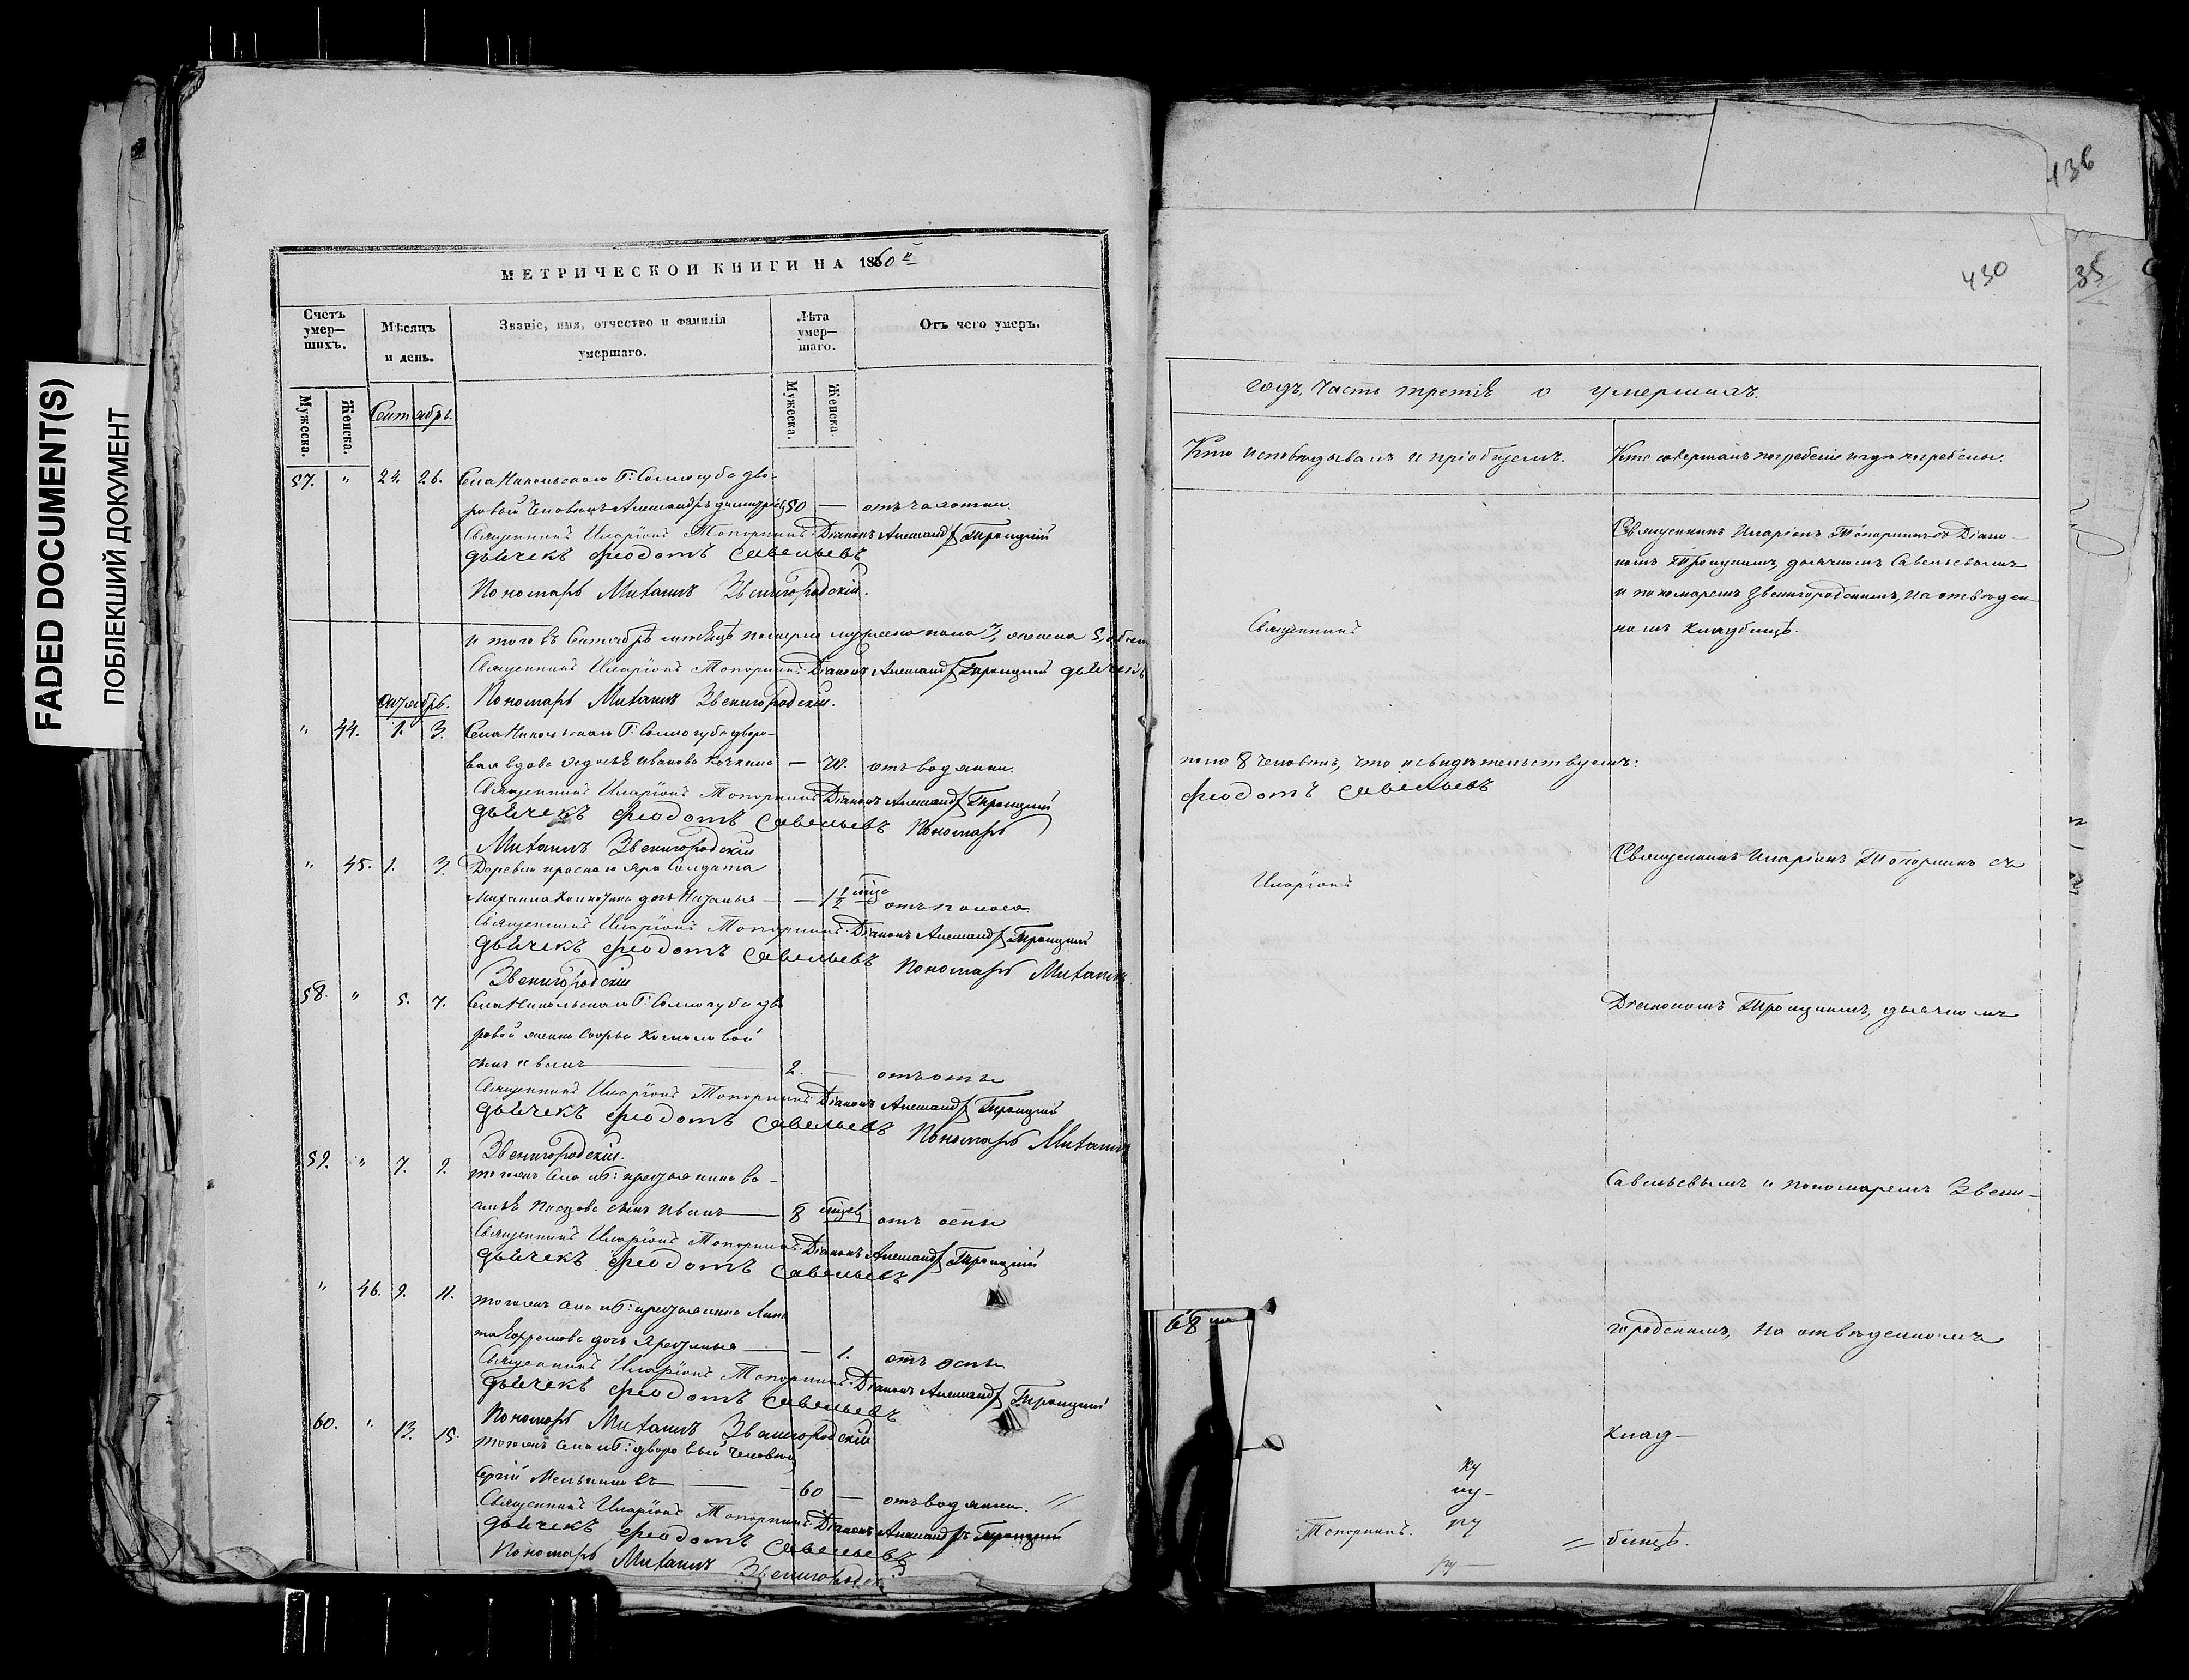 FADED DOCUMENT(S)
ПОБЛЕКШИЙ ДОКУМЕНТ
МЕТРИЧЕСКОЙ КНИГИ НА 1860й
Счетъ умер—шихъ.
Мѣсяцъ и день.
Званіе, имя, отчество и фамилія умершаго.
Лѣта умер—шаго.
Отъ чего умеръ.
Мужеска. Женска.
Мужеска. Женска.
Сентябрь.
57. " 24. 26. Села Никольскаго Г: Соллогуба дво-
ровый Человѣкъ Александръ 50 — отъ чахотки.
Священникъ Иларіонъ Топорнинъ Діаконъ Александръ Троицкій
дьячекъ Феодотъ Савельевъ
Пономарь Михаилъ Звенигородскій.
и того въ Сентябрѣ мѣсяцѣ померло мужеска пола 3, женска 5, обоего
Священникъ Иларіонъ Топорнинъ Діаконъ Александръ Троицкій дьячекъ
Пономарь Михаилъ Звенигородскій.
Октябрь.
" 44. 1. 3. Села Никольскаго Г: Соллогуба дворо-
вая вдова Иванова — 70. отъ водянки.
Священникъ Иларіонъ Топорнинъ Діаконъ Александръ Троицкій
дьячекъ Феодотъ Савельевъ Пономарь
Михаилъ Звенигородскій
" 45. 1. 3. Деревни Краснаго Яра Солдата
Михаила дочь Наталья — 1½ отъ поноса.
Священникъ Иларіонъ Топорнинъ Діаконъ Александръ Троицкій
дьячекъ Феодотъ Савельевъ Пономарь Михаилъ
Звенигородскій
58. " 5. 7. Села Никольскаго Г: Соллогуба дво
ровой
сынъ 2. — отъ оспы
Священникъ Иларіонъ Топорнинъ Діаконъ Александръ Троицкій
дьячекъ Феодотъ Савельевъ Пономарь Михаилъ
Звенигородскій.
59. " 7. 9. тогожъ села и Г: крестьянина
сынъ Иванъ — 8 отъ оспы
Священникъ Иларіонъ Топорнинъ Діаконъ Александръ Троицкій
дьячекъ Феодотъ Савельевъ
" 46. 9. 11. тогожъ села и Г: крестьянина
дочь — 1. отъ оспы
Священникъ Иларіонъ Топорнинъ Діаконъ Александръ Троицкій
дьячекъ Феодотъ Савельевъ
Пономарь Михаилъ Звенигородскій
60. " 13. 15. тогожъ села и Г: дворовый Человѣкъ
Сергій Мельниковъ — 60 — отъ водянки.
Священникъ Иларіонъ Топорнинъ Діаконъ Александръ Троицкій
дьячекъ Феодотъ Савельевъ
Пономарь Михаилъ Звенигородскій
436
35
430
годъ, Часть третія о умершихъ.
Кто исповѣдывалъ и пріобщалъ.
Кто совершалъ погребеніе и гдѣ погребены.
Священникъ Иларіонъ Топорнинъ съ Діако-
номъ Троицкимъ, дьячкомъ Савельевымъ
и пономаремъ Звенигородскимъ, на отведен-
номъ кладбищѣ.
Священникъ
пола 8 человѣкъ, что и свидѣтельствуемъ:
Феодотъ Савельевъ
Священникъ Иларіонъ Топорнинъ съ
Иларіонъ
Діакономъ Троицкимъ, дьячкомъ
Савельевымъ и пономаремъ Звени-
городскимъ, на отведенномъ
68
клад-
Топорнинъ.
бищѣ.